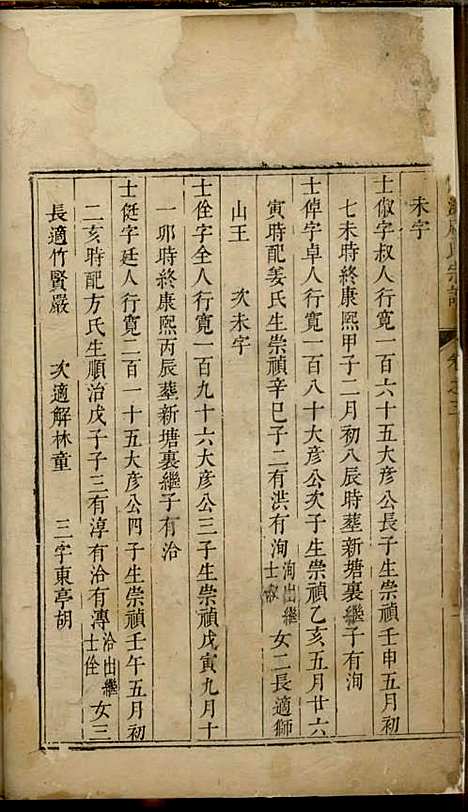 氏宗譜
卷之三
未字
士俶字叔人行寬一百六十五大彥公長子生崇禎壬申五月初
七未時終康熙甲子二月初八辰時塟新塘裏繼子有洵
士倬字卓人行寬一百八十大彥公次子生崇禎乙亥五月廿六
寅時配姜氏生崇禎辛巳子二有洪有洵洵出繼士俶女二長適獅
山王 次未字
士佺字全人行寬一百九十六大彥公三子生崇禎戊寅九月十
一卯時終康熙丙辰塟新塘裏繼子有洽
士侹字廷人行寬二百一十五大彥公四子生崇禎壬午五月初
二亥時配方氏生順治戊子子三有淳有洽有漙洽出繼士佺女三
長適竹賢嚴 次適解林童 三字東亭胡